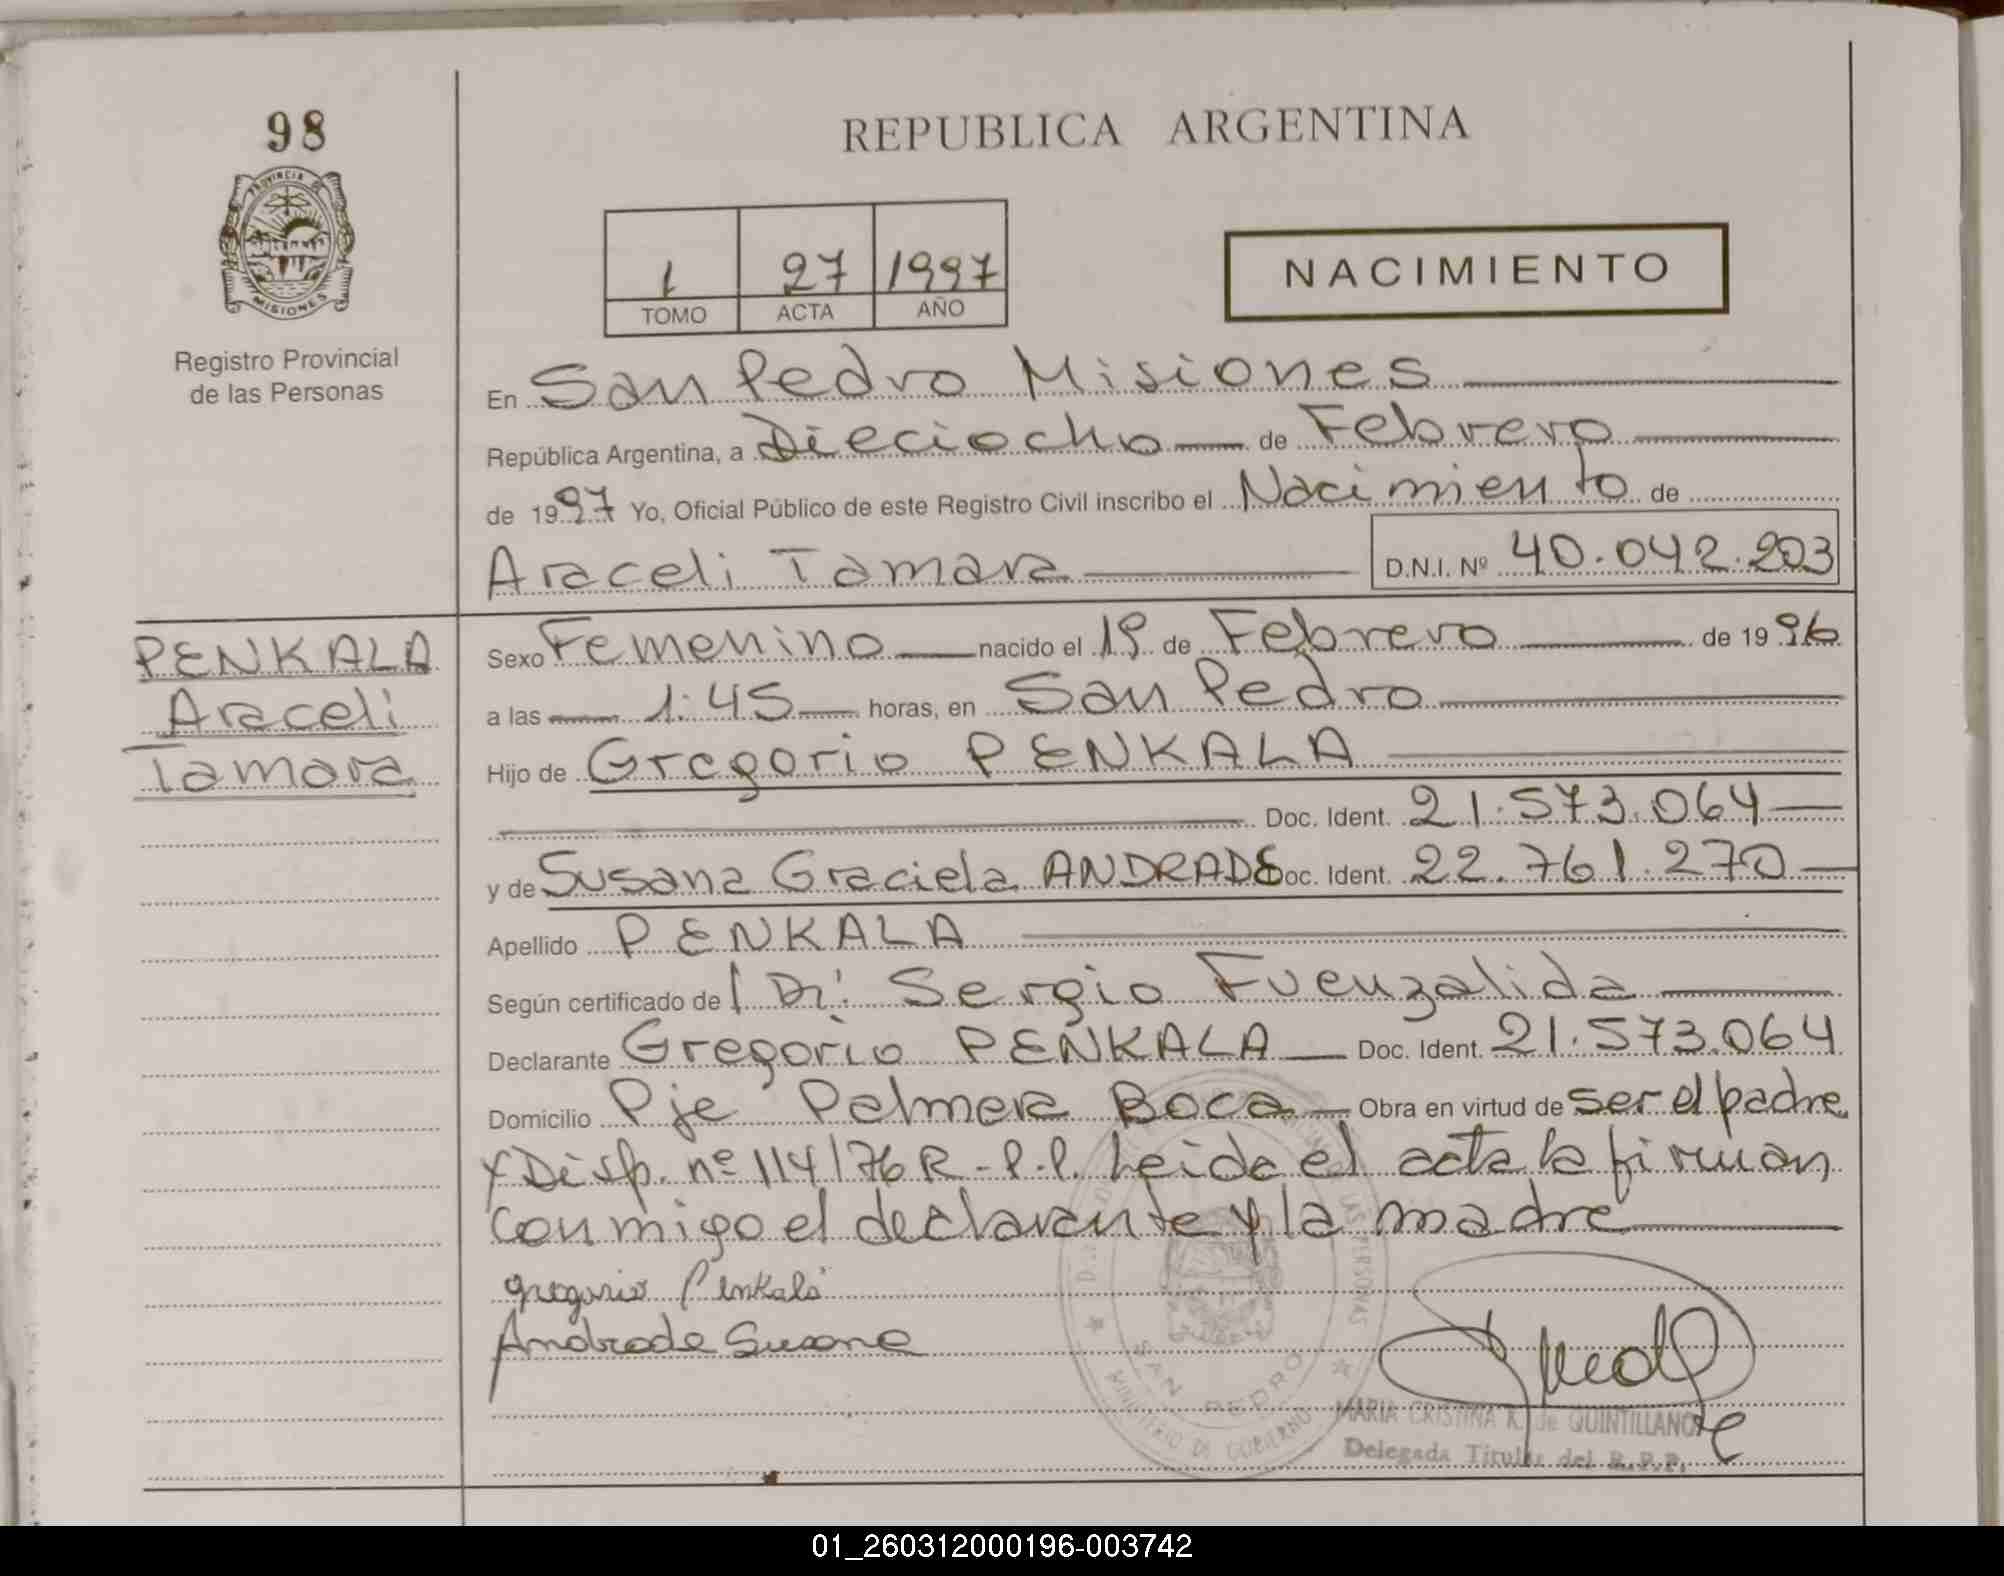 98
PROVINCIA DE
MISIONES
Registro Provincial
de las Personas
REPUBLICA ARGENTINA
1 27 1997
TOMO ACTA AÑO
NACIMIENTO
En San Pedro Misiones
República Argentina, a Dieciocho de Febrero
de 1997 Yo, Oficial Público de este Registro Civil inscribo el Nacimiento de
Araceli Tamara D.N.I. Nº 40.042.203
PENKALA
Araceli
Tamara
Sexo Femenino nacido el 19 de Febrero de 1996
a las 1:45 horas, en San Pedro
Hijo de Gregorio PENKALA
Doc. Ident. 21.573.064
y de Susana Graciela ANDRADE Doc. Ident. 22.761.270
Apellido PENKALA
Según certificado de Dr. Sergio Fuenzalida
Declarante Gregorio PENKALA Doc. Ident. 21.573.064
Domicilio Pje Palmera Boca Obra en virtud de ser el padre
y Disp. nº 114/76 R.P.P. Leida el acta la firman
conmigo el declarante y la madre
gregorio Penkala
Andrade Susana
LAS PERSONAS
SAN PEDRO
MINISTERIO DE GOBIERNO
MARIA CRISTINA R. de QUINTILLAN
Delegada Titular del R.P.P.
01_260312000196-003742